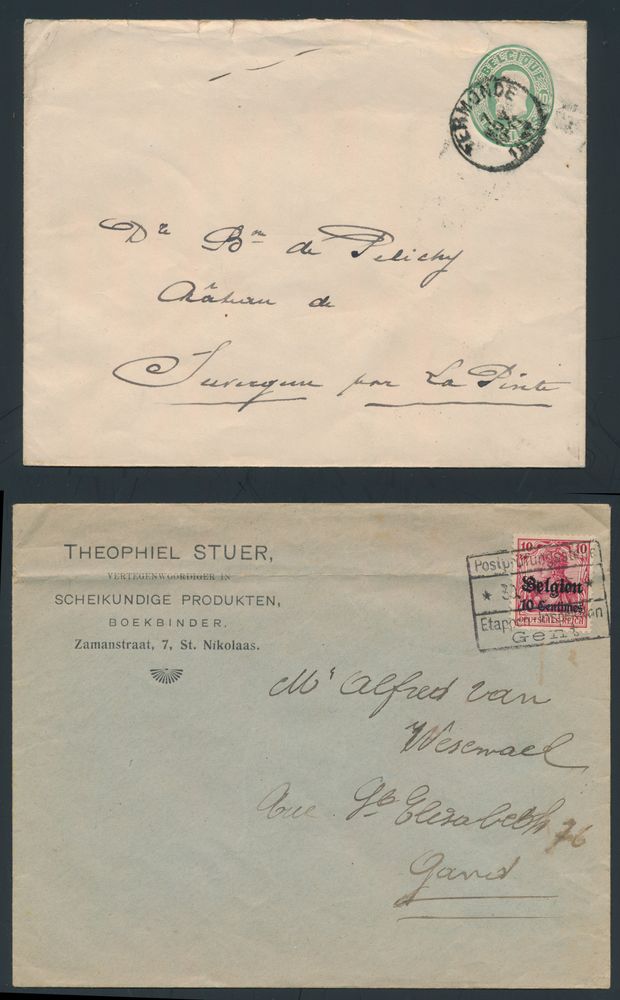 BELGIQUE
TERMONDE
Dr Bon de Pelichy
Château de
par La Pinte
THEOPHIEL STUER,
VERTEGENWOORDIGER IN
SCHEIKUNDIGE PRODUKTEN,
BOEKBINDER.
Zamanstraat, 7, St. Nikolaas.
10 10
Belgien
10 Centimes
DEUTSCHES REICH
Postprüfungsstelle
Gent
Mr Alfred van
Wesemael
Rue Ste Elisabeth 76
Gand